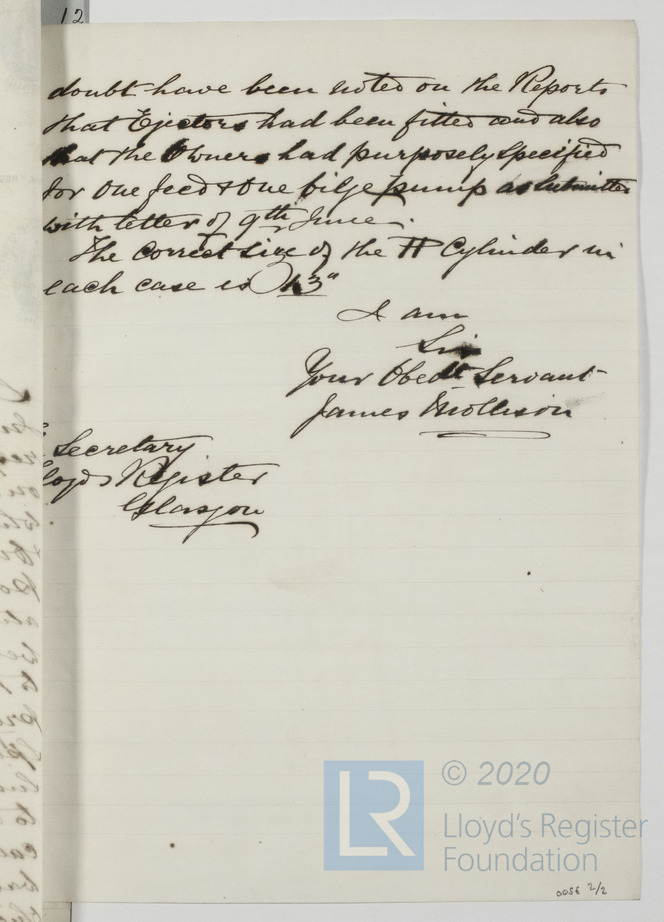 12
doubt have been noted on the Reports
that Ejectors had been fitted and also
that the Owners had purposely specified
for one feed & one bilge pump as submitted
with letter of 9th June.
The correct size of the HP Cylinder in
each case is 13"
I am
Sir
Your Obedt Servant
James Mollison
Secretary
Lloyds Register
Glasgow
LR
© 2020
Lloyd's Register
Foundation
0056 2/2